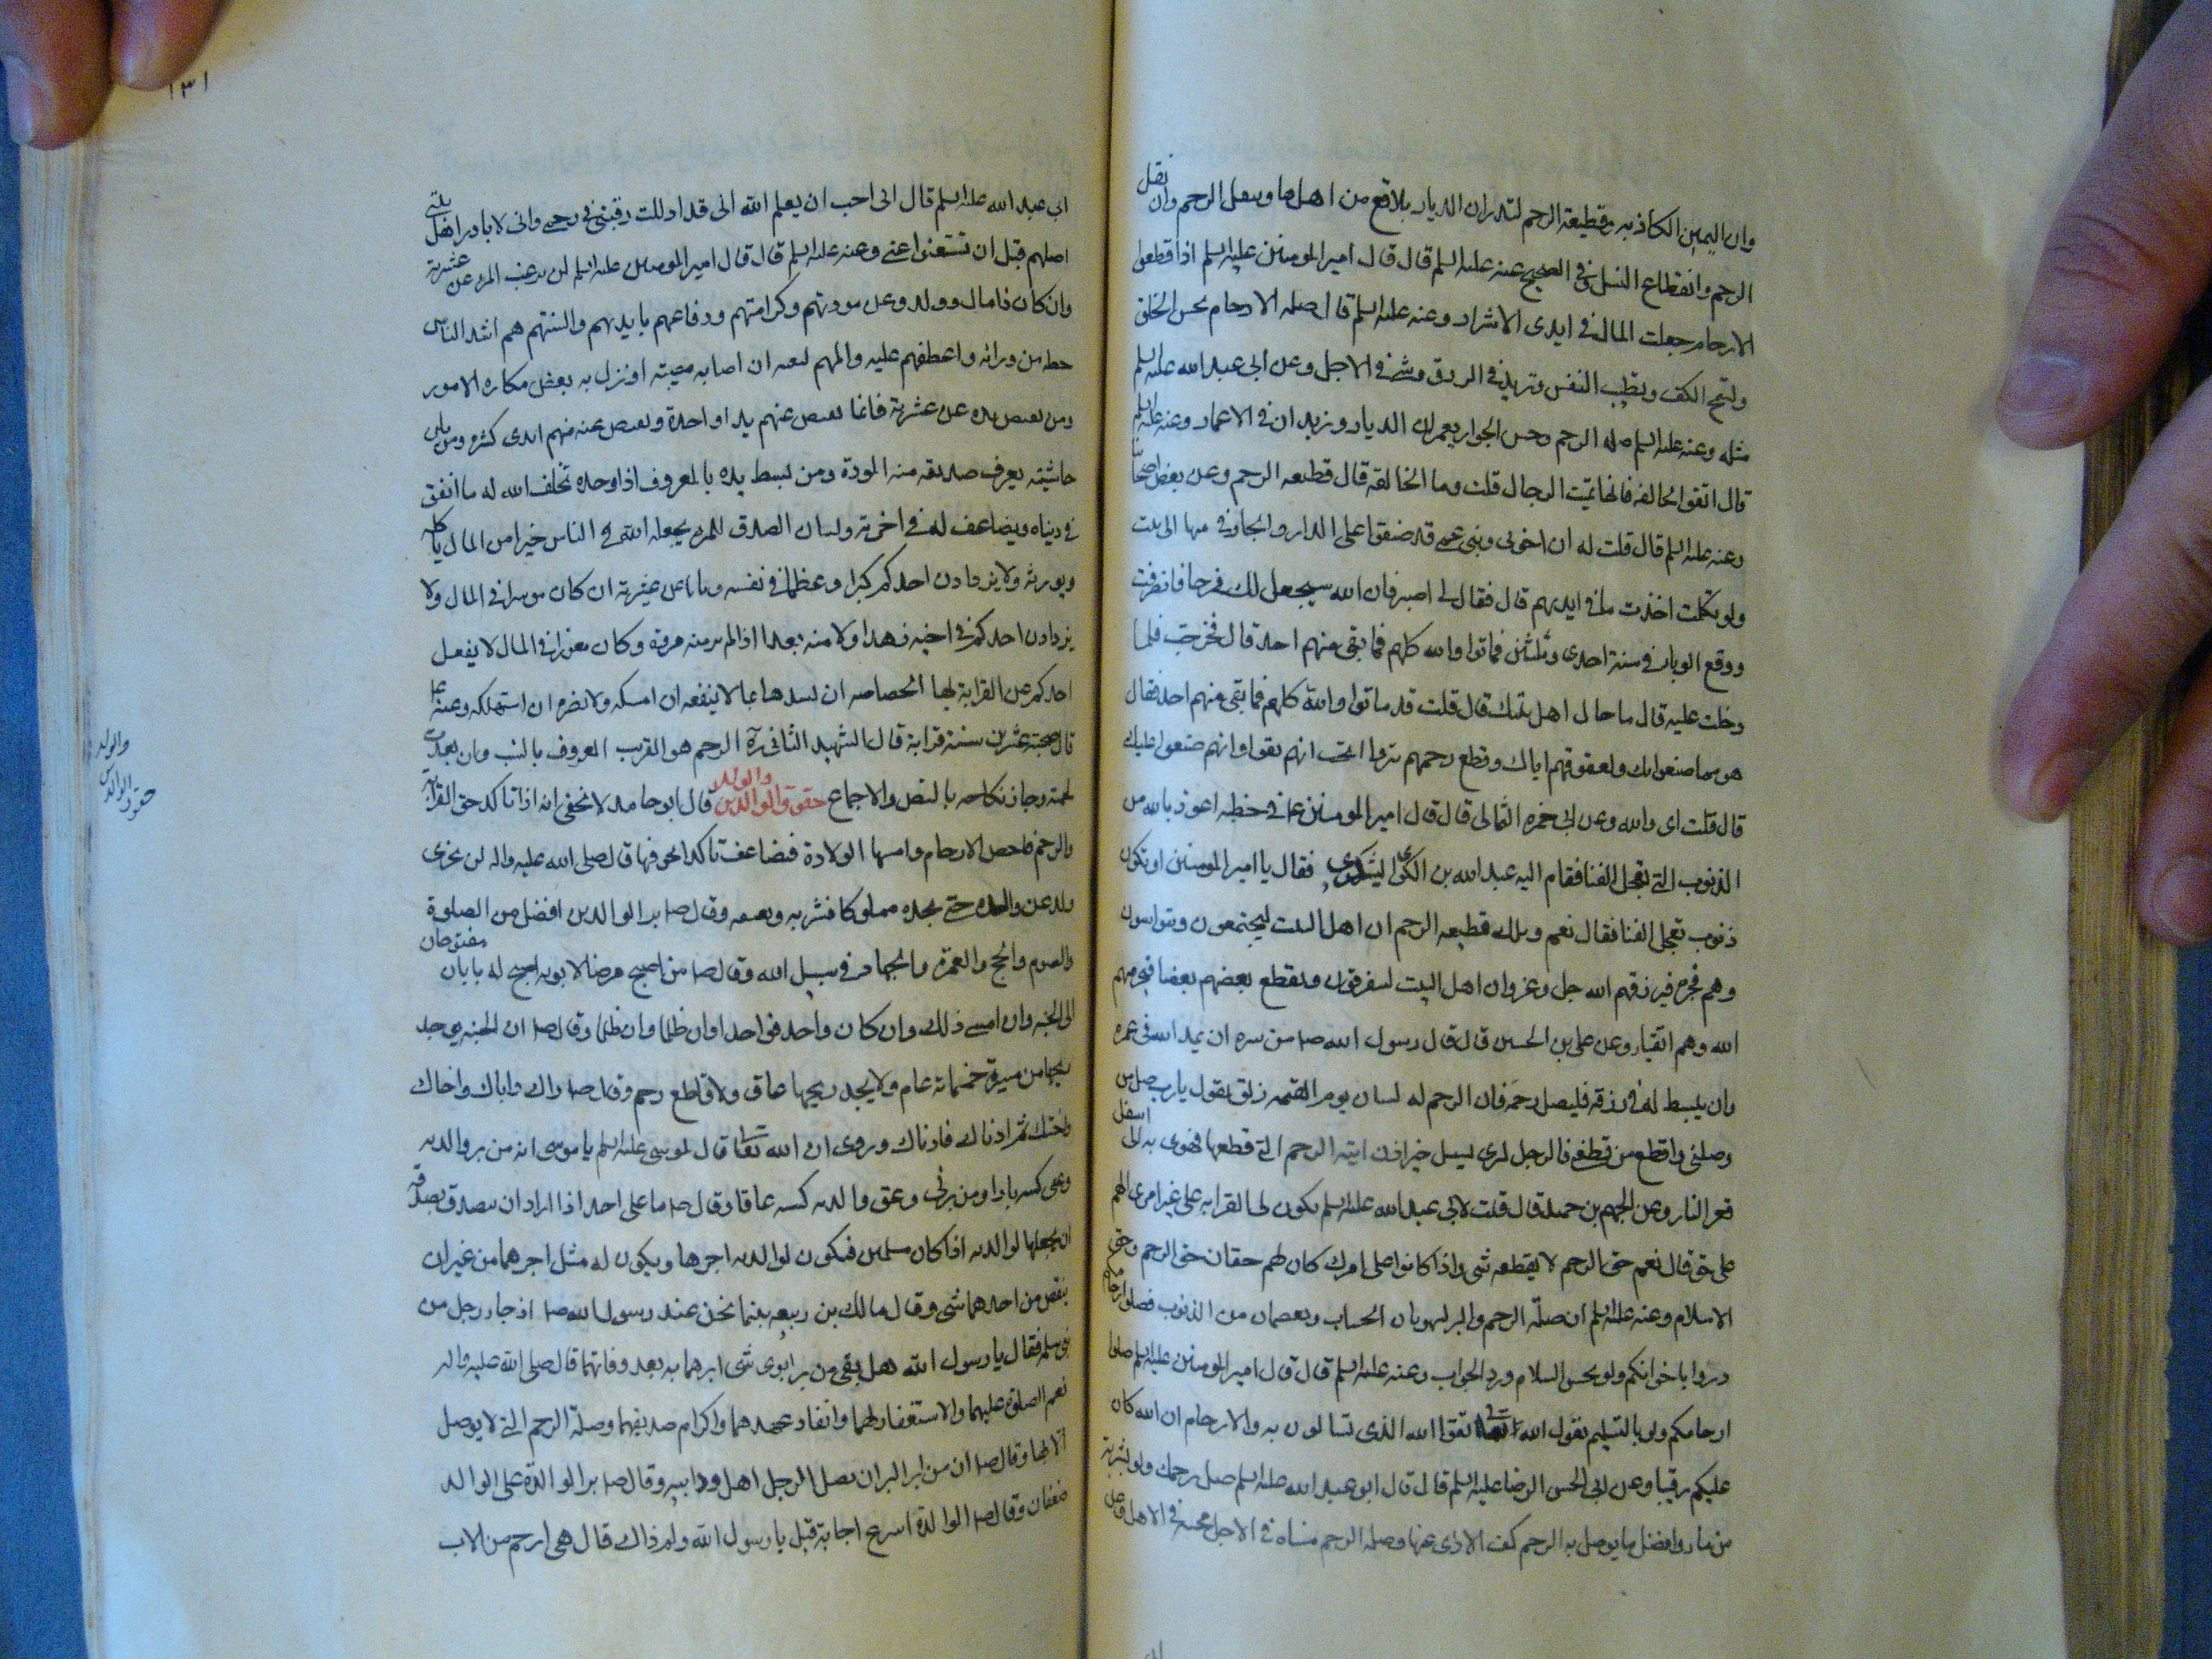 وان اليمين الكاذبه وقطيعة الرحم لتذران الديار بلاقع من اهلها وينقل الرحم وان نقل
الرحم وانقطاع النسل وفي الصحيح عنه عليه السلم قال قال امير المومنين عليه السلم اذا قطعوا
الارحام جعلت المال في ايدى الاشرار وعنه عليه السلم قال صله الارحام تحسن الخلق
وتسمح الكف وتطيب النفس وتزيد في الرزق وتنسئ في الاجل وعن ابي عبد الله عليه السلم
مثله وعنه عليه السلم صله الرحم وحسن الجوار يعمران الديار ويزيدان في الاعمار وعنه عليه السلم
قال اتقوا الحالقه فانها تميت الرجال قلت وما الحالقة قال قطيعه الرحم وعن بعض اصحابنا
وعنه عليه السلم قال قلت له ان اخوتي وبني عمي قد ضيقوا على الدار والجاوني منها الى بيت
ولو تكلمت اخذت ما في ايديهم قال فقال لي اصبر فان الله سيجعل لك فرجا فانصرفت
ووقع الوباء في سنة احدى وثلثين فماتوا والله كلهم فما بقى منهم احد قال فخرجت فلما
دخلت عليه قال ما حال اهل بيتك قال قلت قد ماتوا والله كلهم فما بقى منهم احد فقال
هو بما صنعوا بك ولعقوقهم اياك وقطع رحمهم بتروا اتحب انهم بقوا وانهم ضيقوا عليك
قال قلت اى والله وعن ابي حمزه الثمالى قال قال امير المومنين ع في خطبه اعوذ بالله من
الذنوب التي تعجل الفنا فقام اليه عبد الله بن الكوى اليشكرى فقال يا امير المومنين او تكون
ذنوب تعجل الفنا فقال نعم ويلك قطيعه الرحم ان اهل البيت ليجتمعون ويتواسون
وهم فجره فيرزقهم الله جل وعز وان اهل البيت ليفرقون ويقطع بعضهم بعضا فيحرمهم
الله وهم اتقياء وعن على بن الحسين قال قال رسول الله ص من سره ان يمد الله في عمره
وان يبسط له في رزقه فليصل رحمه فان الرحم له لسان يوم القيمه ذلق يقول يارب صل من
وصلني واقطع من قطعني فالرجل ليرى لسبيل خير اذ اتته الرحم التي قطعها فتهوى به الى اسفل
قعر النار وعن الجهم بن حميد قال قلت لابي عبد الله عليه السلم يكون لى القرابه على غير امرى الهم
على حق قال نعم حق الرحم لا يقطعه شى واذا كانوا على امرك كان لهم حقان حق الرحم وحق
الاسلام وعنه عليه السلم ان صلة الرحم والبر ليهونان الحساب ويعصمان من الذنوب فصلوا ارحامكم
وبروا باخوانكم ولو بحسن السلام ورد الجواب وعنه عليه السلم قال قال امير المومنين عليه السلم صلوا
ارحامكم ولو بالتسليم يقول الله تعالى اتقوا الله الذى تسالون به والارحام ان الله كان
عليكم رقيبا وعن ابي الحسن الرضا عليه السلم قال قال ابو عبد الله عليه السلم صل رحمك ولو بشربة
من ماء وافضل ما يوصل به الرحم كف الاذى عنها وصله الرحم منساه في الاجل محببه في الاهل وعن
١٣١
ابي عبد الله عليه السلم قال انى احب ان يعلم الله انى قد اذللت رقبتي في رحمي وانى لابادر اهل بيتي
اصلهم قبل ان يستغنوا عني وعنه عليه السلم قال قال امير المومنين عليه السلم لن يرغب المرء عن عشيرته
وان كان ذا مال وولد وعن مودتهم وكرامتهم ودفاعهم بايديهم والسنتهم هم اشد الناس
حيطه من ورائه واعطفهم عليه والمهم لشعثه ان اصابه مصيبته او نزل به بعض مكاره الامور
ومن يقبض يده عن عشيرته فانما يقبض عنهم يدا واحدة ويقبض عنه منهم ايدى كثيره ومن يلن
حاشيته يعرف صديقه منه المودة ومن بسط يده بالمعروف اذا وجده يخلف الله له ما انفق
في دنياه ويضاعف له في اخرته ولسان الصدق للمرء يجعله الله في الناس خيرا من المال ياكله
ويورثه ولا يزدادن احدكم كبرا وعظما في نفسه ونايا عن عشيرته ان كان موسرا في المال ولا
يزدادن احدكم في اخيه زهدا ولا منه بعدا اذا لم ير منه مروة وكان معوزا في المال لا يغفل
احدكم عن القرابة بها الخصاصه ان يسدها بما لا ينفعه ان امسكه ولا يضره ان استهلكه وعنه ع
قال صحبة عشرين سنة قرابة قال الشهيد الثانى ره الرحم هو القريب المعروف بالنسب وان بعدت
لحمته وجاز نكاحه بالنص والاجماع حقوق الوالدين والولد قال ابو حامد لا يخفى انه اذا تاكد حق القرابة
والرحم فاخص الارحام وامسها الولادة فيضاعف تاكد الحق فيها قال صلى الله عليه واله لن يجزى
ولد عن والده حتى يجده مملوكا فيشتريه ويعتقه وقال ص بر الوالدين افضل من الصلوة
والصوم والحج والعمرة والجهاد في سبيل الله وقال ص من اصبح مرضيا لابويه اصبح له بابان مفتوحان
الى الجنه وان امسى ذلك وان كان واحد فواحد وان ظلما وان ظلما وقال ص ان الجنه يوجد
ريحها من مسيرة خمسمائة عام ولا يجد ريحها عاق ولا قاطع رحم وقال ص امك واباك واخاك
واختك ثم ادناك فادناك وروى ان الله تعا قال لموسى عليه السلم يا موسى انه من بر والديه
وعقني كتبته بارا ومن برنى وعق والديه كتبته عاقا وقال ص ما على احد اذا اراد ان يتصدق بصدقة
ان يجعلها لوالديه اذا كان مسلمين فيكون لوالديه اجرها ويكون له مثل اجرهما من غير ان
ينقص من احدهما شى وقال مالك بن ربيعه بينما نحن عند رسول الله ص اذ جاء رجل من
بني سلمه فقال يا رسول الله هل بقى من بر ابوى شى ابرهما به بعد وفاتهما قال صلى الله عليه واله
نعم الصلوة عليهما والاستغفار لهما وانفاذ عهدهما واكرام صديقهما وصلة الرحم التي لا يوصل
الا بها وقال ص ان من ابر البر ان يصل الرجل اهل ود ابيه وقال ص بر الوالدة على الوالد
ضعفان وقال ص الوالدة اسرع اجابة قيل يا رسول الله ولم ذاك قال هى ارحم من الاب
حقوق الوالدين
والولد